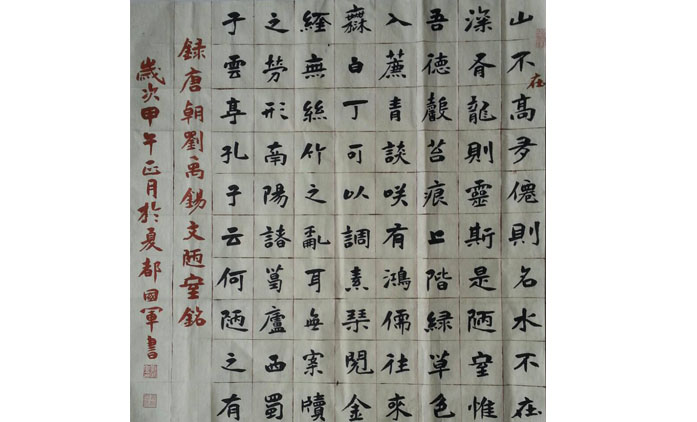 山不在高有僊則名水不在
深有龍則靈斯是陋室惟
吾德馨苔痕上階緑草色
入簾青談咲有鴻儒往來
無白丁可以調素琴閲金
經無絲竹之亂耳無案牘
之勞形南陽諸葛廬西蜀
子雲亭孔子云何陋之有
録唐朝劉禹錫文陋室銘
歲次甲午正月於夏都國軍書